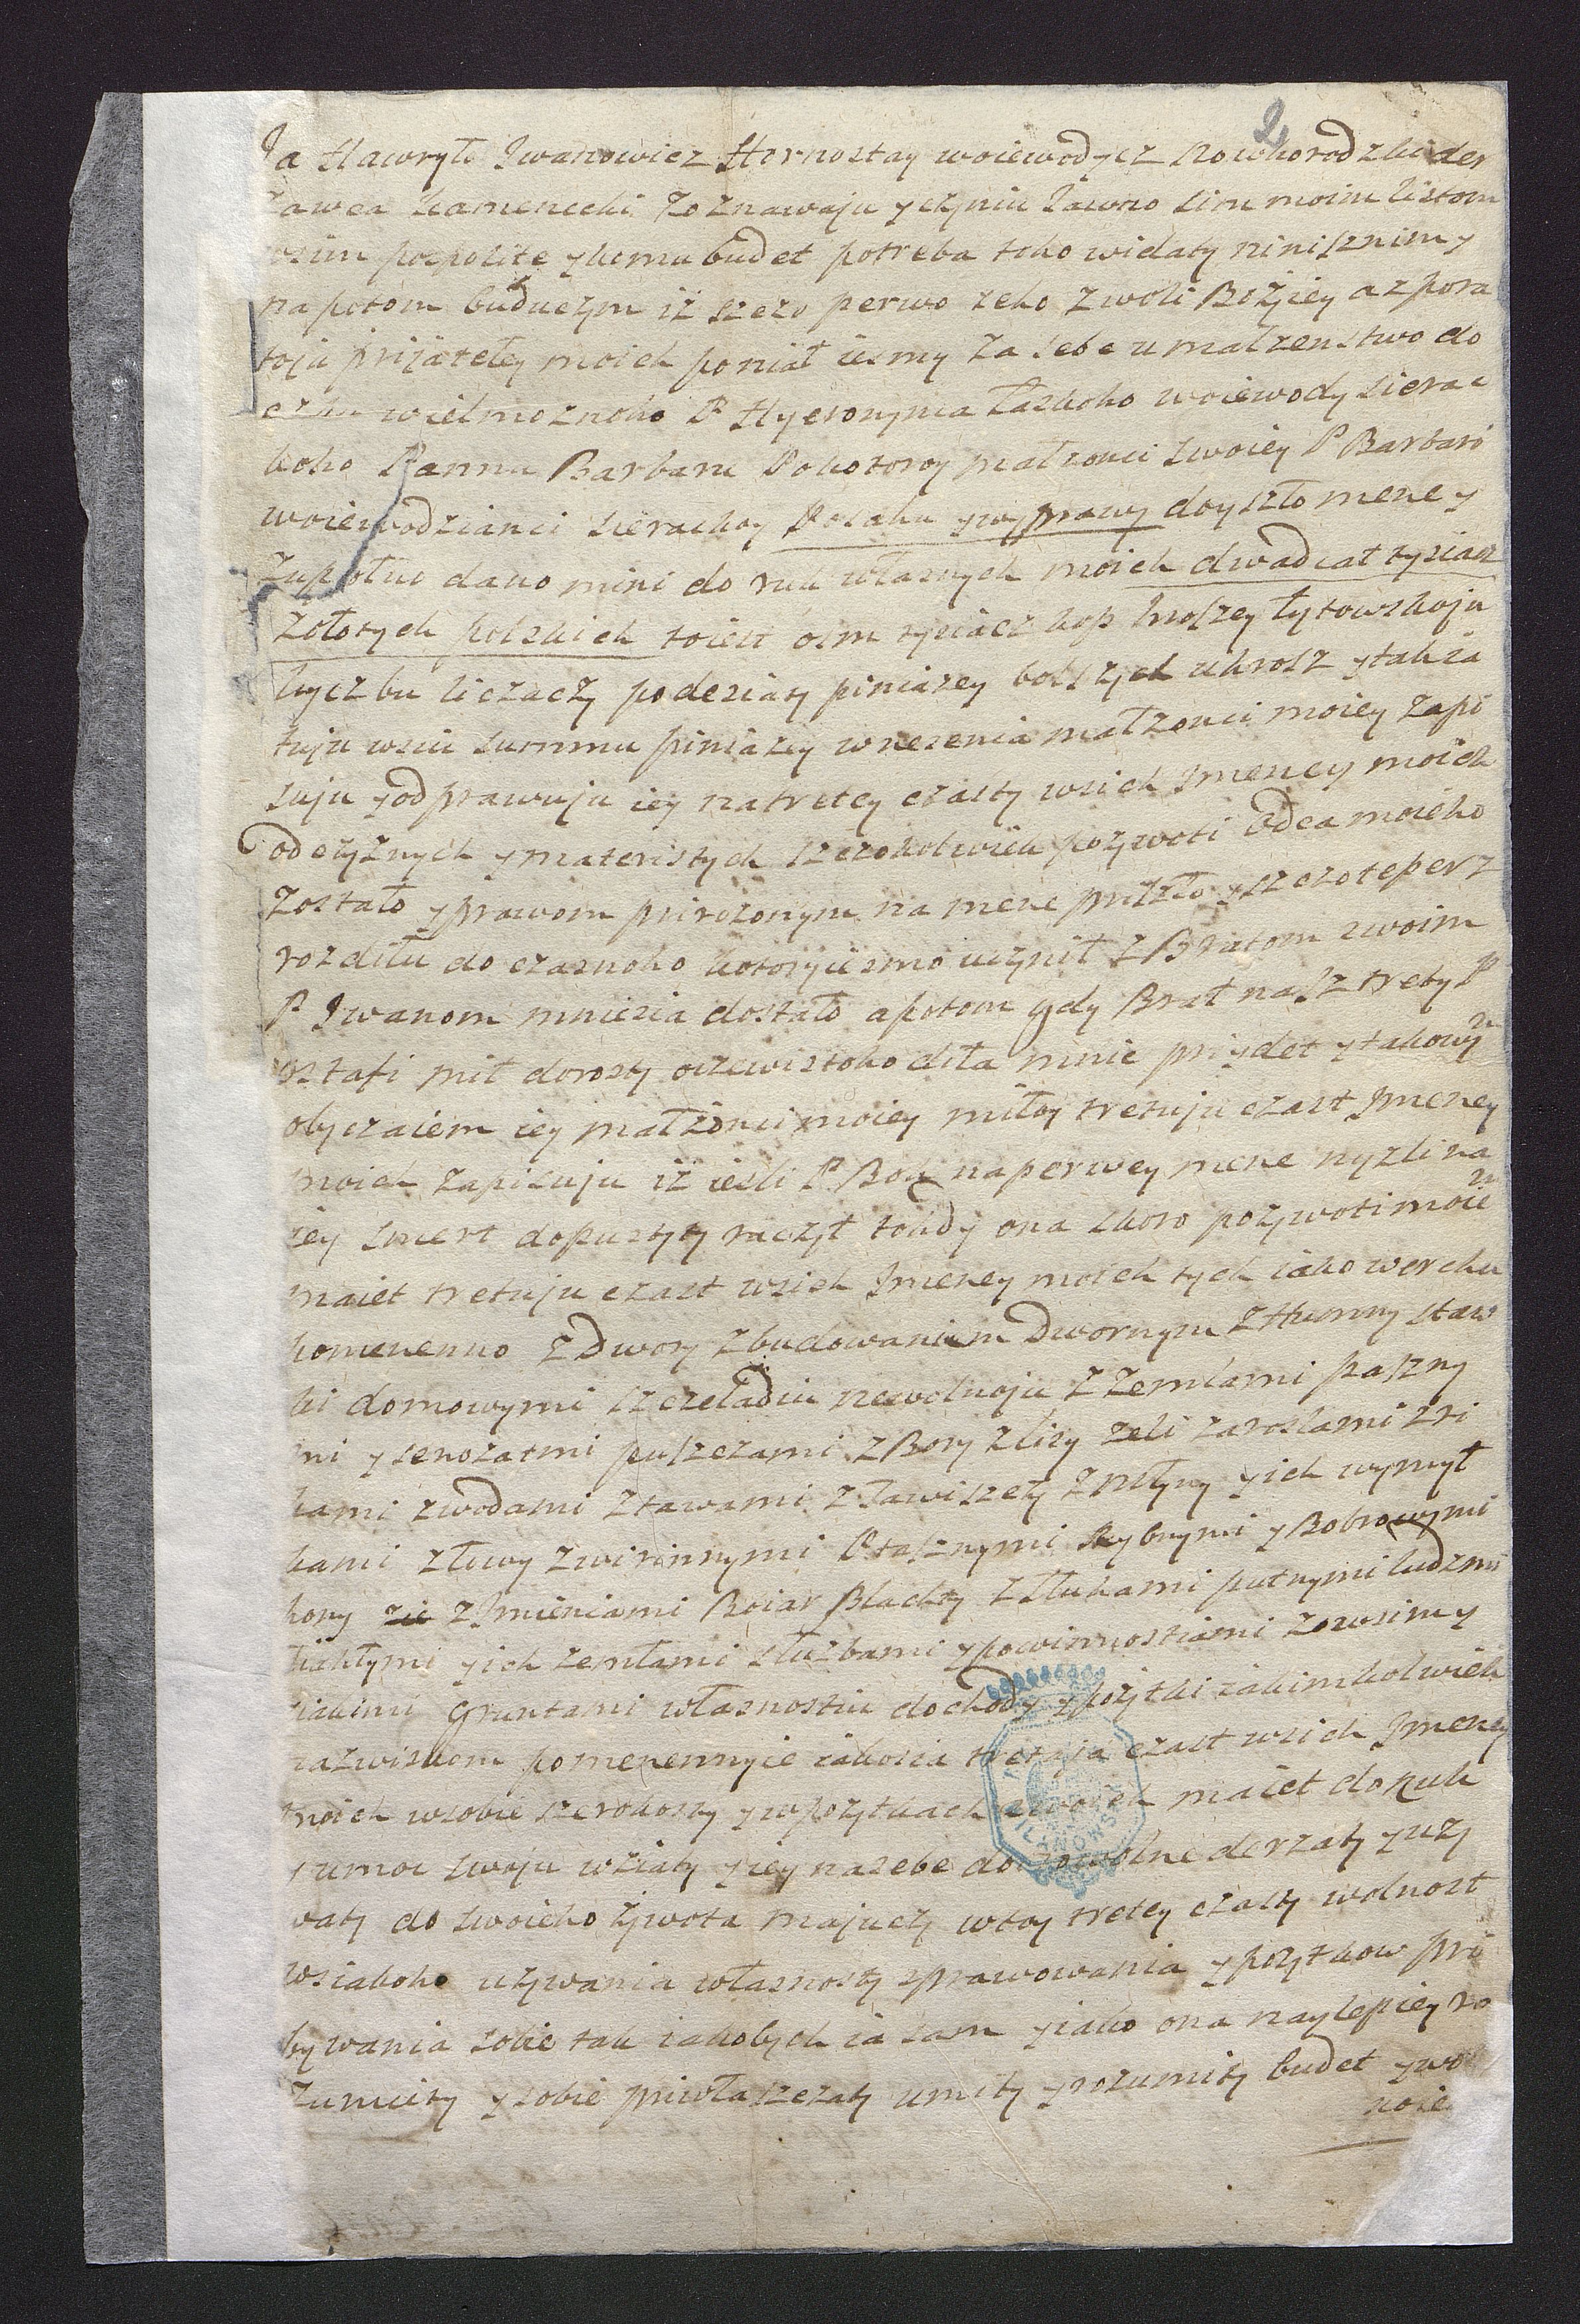 2
Ja Hawryło Jwanowicz Hornostay woiewodycz Nowhorodzki der
zawca Kamenecki Zoznawaju y czyniu Jawno sim moim listom
wsim pospolite y komu budet potreba toho widaty ninisznim y
na potom buduczym iż szczo perwo seho z woli Bożiey a z pora
toju prijateley moich poniał iesmy za sebe u małzenstwo do
czku wielmoznoho P Hyeronyma Łaskoho woiewody Sierac
koho Pannu Barbaru Po kotoroy małzonci swoiey P Barbari
woiewodzianci Sierackoy Posahu y wyprawy doyszło mene y
Zupołno dano mini do ruk własnych moich dwadcat tysiacz
Zołotych polskich toiest osm tysiacz kop hroszey łytowskoju
liczbu liczaczy po desiaty piniazey bołszych u hrosz y takża
tuju wsiu summu piniazey wnesenia małzonci moiey zapi
suju y odprawuju iey na tretey czasty wsich Jmeney moich
odczyznych y materistych szczokolwiek po zywoti odca moieho
Zostało y prawom prirozonym na mene priszło y szczo teperz
rozdiłu do czasnoho kotoryiesmo uczynił z Bratom swoim
P Jwanom mniesia dostało a potom gdy Brat nasz trety P
ostafi mił dorosty oczewistoho diła mnie priydet y takowym
obyczaiem iey małżonci moiey miłoy tretuju czast Jmeney
moich zapisuju iż iesli P Boh naperwey mene nyzli na
iey smert dopustyty raczył tohdy ona skoro po zywoti moiem
maiet tretuju czast wsich Jmeney moich tych iako werchu
pomenenno z Dwory z budowaniem Dwornym z Humny staw
ki domowymi z czeladiu newolnoju z zemlami paszny
mi y senozatmi puszczami z Bory z lisy zeli zaroslami z ri
kami z wodami z stawami z stawiszcty z młyny y ich wymył
kami z łowy zwirinnymi Ptasznymi Rybnymi y Bobrowymi
hony z Jmieniami Boiar Szlachty z słuhami putnymi ludzmi
tiahłymi y ich zemlami słuzbami y powinnostiami zo wsimy
iakimi Gruntami własnostiu dochody y pożytki iakimkolwiek
nazwiskom pomenennyie iakosia tretaja czast wsich Jmeney
moich w sobie szerokosty y w pożytkach swoich maiet do ruk
y u moc swoju wziaty y iey na sebe dobrowolne derzaty y uży
waty do swoieho żywota majuczy w toy tretey czasty wolnost
wsiakoho używania własnosty sprawowania y pożytkow pri
bywania sobie tak iakobych ia sam y iako ona naylepiey ro
zumiety y sobie priwłaszczaty umiety y rozumity budet y wol
noie